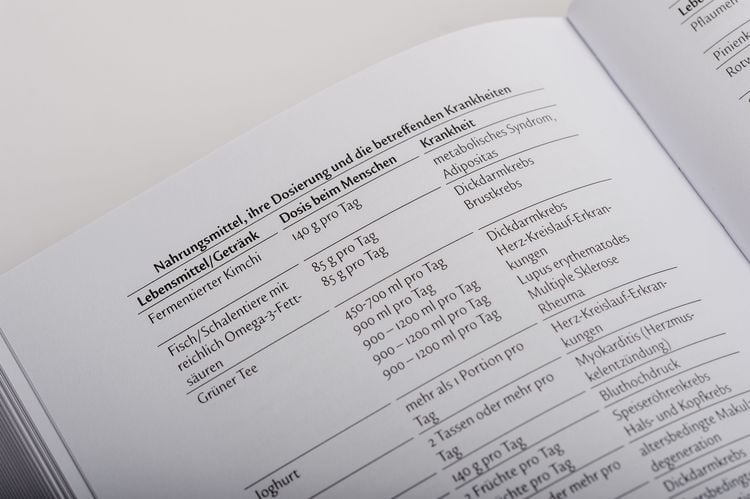 Nahrungsmittel, ihre Dosierung und die betreffenden Krankheiten
Lebensmittel/Getränk Dosis beim Menschen Krankheit
Fermentierter Kimchi 140 g pro Tag metabolisches Syndrom,
Adipositas
Fisch/Schalentiere mit 85 g pro Tag Dickdarmkrebs
reichlich Omega-3-Fett- 85 g pro Tag Brustkrebs
säuren
Grüner Tee 450-700 ml pro Tag Dickdarmkrebs
900 ml pro Tag Herz-Kreislauf-Erkran-
kungen
900 – 1200 ml pro Tag Lupus erythematodes
900 – 1200 ml pro Tag Multiple Sklerose
900 – 1200 ml pro Tag Rheuma
Joghurt mehr als 1 Portion pro Herz-Kreislauf-Erkran-
Tag kungen
2 Tassen oder mehr pro Myokarditis (Herzmus-
Tag kelentzündung)
140 g pro Tag Bluthochdruck
2 Früchte pro Tag Speiseröhrenkrebs
Früchte pro Tag Hals- und Kopfkrebs
oder mehr pro altersbedingte Makula
degeneration
Dickdarmkrebs
Pflaumen
Pinienk
Rotw